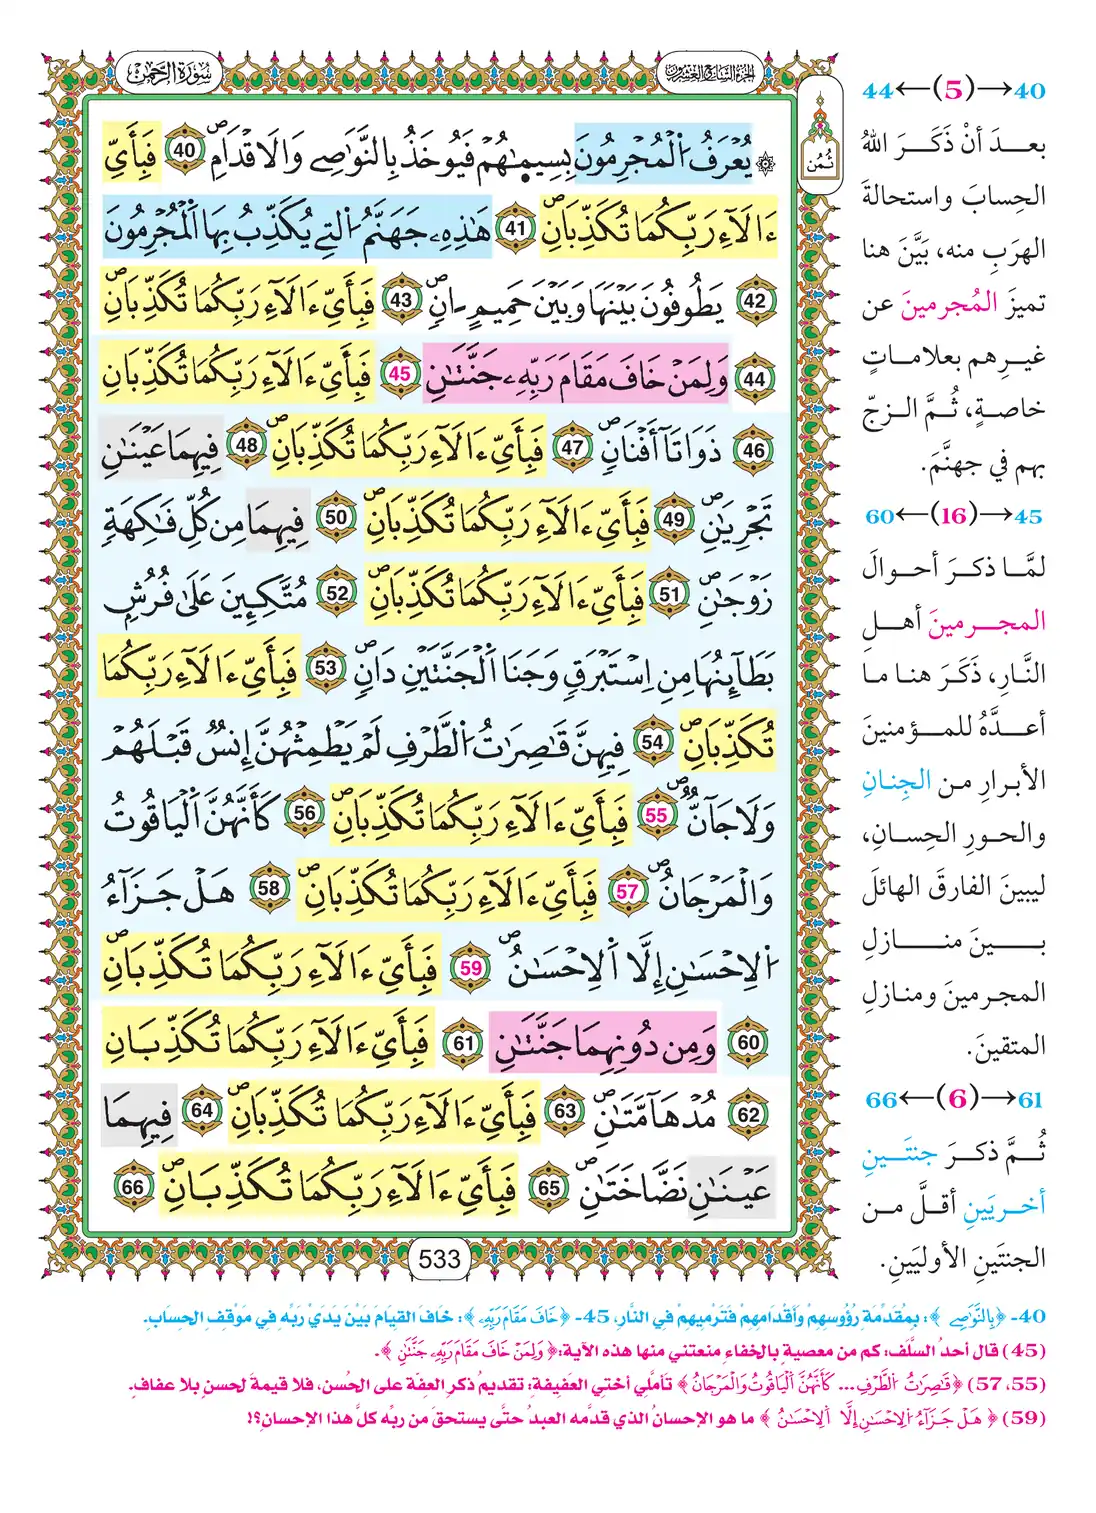 سُورَةُ الرَّحْمَٰن
الجزء السابع والعشرون
ثُمُن
يُعْرَفُ اُ۬لْمُجْرِمُونَ بِسِيمَٰهُمْ فَيُوخَذُ بِالنَّوَٰصِے وَالَاقْدَامِۖ 40 فَبِأَيِّ
ءَالَآءِ رَبِّكُمَا تُكَذِّبَانِۖ 41 هَٰذِهِۦ جَهَنَّمُ اُ۬لتِے يُكَذِّبُ بِهَا اَ۬لْمُجْرِمُونَ
42 يَطُوفُونَ بَيْنَهَا وَبَيْنَ حَمِيمٍ اٰنٖۖ 43 فَبِأَيِّ ءَالَآءِ رَبِّكُمَا تُكَذِّبَانِۖ
44 وَلِمَنْ خَافَ مَقَامَ رَبِّهِۦ جَنَّتَٰنِۖ 45 فَبِأَيِّ ءَالَآءِ رَبِّكُمَا تُكَذِّبَانِ
46 ذَوَاتَآ أَفْنَانٖۖ 47 فَبِأَيِّ ءَالَآءِ رَبِّكُمَا تُكَذِّبَانِۖ 48 فِيهِمَا عَيْنَٰنِ
تَجْرِيَٰنِۖ 49 فَبِأَيِّ ءَالَآءِ رَبِّكُمَا تُكَذِّبَانِۖ 50 فِيهِمَا مِن كُلِّ فَٰكِهَةٖ
زَوْجَٰنِۖ 51 فَبِأَيِّ ءَالَآءِ رَبِّكُمَا تُكَذِّبَانِۖ 52 مُتَّكِـِٕينَ عَلَىٰ فُرُشِۢ
بَطَآئِنُهَا مِنِ اِسْتَبْرَقٖ وَجَنَا اَ۬لْجَنَّتَيْنِ دَانٖۖ 53 فَبِأَيِّ ءَالَآءِ رَبِّكُمَا
تُكَذِّبَانِۖ 54 فِيهِنَّ قَٰصِرَٰتُ اُ۬لطَّرْفِ لَمْ يَطْمِثْهُنَّ إِنسٞ قَبْلَهُمْ
وَلَا جَآنّٞۖ 55 فَبِأَيِّ ءَالَآءِ رَبِّكُمَا تُكَذِّبَانِۖ 56 كَأَنَّهُنَّ اَ۬لْيَاقُوتُ
وَالْمَرْجَانُۖ 57 فَبِأَيِّ ءَالَآءِ رَبِّكُمَا تُكَذِّبَانِۖ 58 هَلْ جَزَآءُ
اُ۬لِاحْسَٰنِ إِلَّا اَ۬لِاحْسَٰنُۖ 59 فَبِأَيِّ ءَالَآءِ رَبِّكُمَا تُكَذِّبَانِۖ
60 وَمِن دُونِهِمَا جَنَّتَٰنِۖ 61 فَبِأَيِّ ءَالَآءِ رَبِّكُمَا تُكَذِّبَانِ
62 مُدْهَآمَّتَٰنِۖ 63 فَبِأَيِّ ءَالَآءِ رَبِّكُمَا تُكَذِّبَانِۖ 64 فِيهِمَا
عَيْنَٰنِ نَضَّاخَتَٰنِۖ 65 فَبِأَيِّ ءَالَآءِ رَبِّكُمَا تُكَذِّبَانِۖ 66
533
40→(5)←44
بعدَ أنْ ذَكَرَ اللهُ
الحِسابَ واستحالةَ
الهرَبِ منه، بَيَّنَ هنا
تميزَ المُجرمينَ عن
غيرِهم بعلاماتٍ
خاصةٍ، ثُمَّ الزجّ
بهم في جهنَّمَ.
45→(16)←60
لمَّا ذكرَ أحوالَ
المجرمينَ أهلِ
النَّارِ، ذَكَرَ هنا ما
أعدَّهُ للمؤمنينَ
الأبرارِ من الجِنانِ
والحورِ الحِسانِ،
ليبينَ الفارقَ الهائلَ
بينَ منازلِ
المجرمينَ ومنازلِ
المتقينَ.
61→(6)←66
ثُمَّ ذكرَ جنتَينِ
أخريَينِ أقلَّ من
الجنتَينِ الأوليَينِ.
40- ﴿بِالنَّوَٰصِے﴾: بمُقدِّمةِ رُؤُوسِهِمْ وَأقْدَامِهِمْ فَتَرْمِيهِمْ في النَّارِ، 45- ﴿خَافَ مَقَامَ رَبِّهِۦ﴾: خَافَ القِيَامَ بَيْنَ يَدَيْ رَبِّه في مَوْقِفِ الحِسَابِ.
(45) قال أحدُ السَّلَف: كم من معصيةٍ بالخفاءِ منعتني منها هذه الآية: ﴿وَلِمَنْ خَافَ مَقَامَ رَبِّهِۦ جَنَّتَٰنِ﴾.
(57،55) ﴿قَٰصِرَٰتُ اُ۬لطَّرْفِ ... كَأَنَّهُنَّ اَ۬لْيَاقُوتُ وَالْمَرْجَانُ﴾ تأمَّلي أختي العفيفة: تقديمُ ذكرِ العِفةِ على الحُسن، فلا قيمةَ لحسنٍ بلا عفافٍ.
(59) ﴿هَلْ جَزَآءُ اُ۬لِاحْسَٰنِ إِلَّا اَ۬لِاحْسَٰنُ﴾ ما هو الإحسانُ الذي قدَّمه العبدُ حتَّى يستحقَ من ربِّه كلَّ هذا الإحسانِ؟!